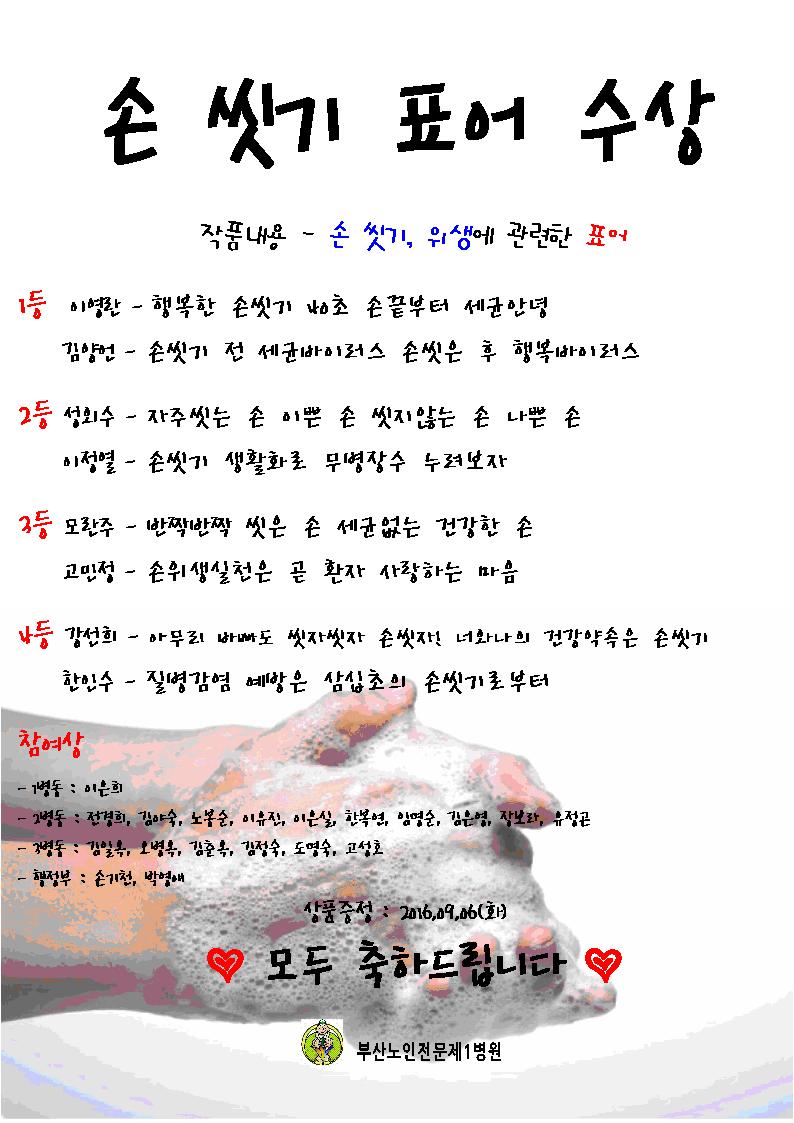 손 씻기 표어 수상
작품내용 - 손 씻기, 위생에 관련한 표어
1등 이영란 - 행복한 손씻기 40초 손끝부터 세균안녕
김양언 - 손씻기 전 세균바이러스 손씻은 후 행복바이러스
2등 성외수 - 자주씻는 손 이쁜 손 씻지않는 손 나쁜 손
이정열 - 손씻기 생활화로 무병장수 누려보자
3등 모란주 - 반짝반짝 씻은 손 세균없는 건강한 손
고민정 - 손위생실천은 곧 환자 사랑하는 마음
4등 강선희 - 아무리 바빠도 씻자씻자 손씻자! 너와나의 건강약속은 손씻기
한인수 - 질병감염 예방은 삼십초의 손씻기로부터
참여상
- 1병동 : 이은희
- 2병동 : 전경희, 김야숙, 노봉순, 이유진, 이은실, 한복연, 임명순, 김은영, 장보라, 유정곤
- 3병동 : 김일옥, 오병옥, 김춘옥, 김정숙, 도명숙, 고성호
- 행정부 : 손기천, 박영애
상품증정 : 2016.09.06(화)
모두 축하드립니다
부산노인전문제1병원